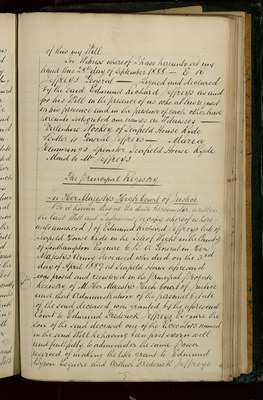 of this my Will
In Witness whereof I have hereunto set my
hand this 28th day of September 1888 — E R
Jeffreys General — Signed and declared
by the said Edmund Richard Jeffreys as and
for his Will in the presence of us who at his request
in his presence and in the presence of each other have
hereunto subscribed our names as Witnesses —
of Seafield House Ryde
Butler to General Jeffreys —
Spinster Seafield House Ryde
Maid to Mrs Jeffreys
The Principal Registry
In Her Majesty's High Court of Justice
Be it known that at the date hereunder written
the last Will and Testament (a copy whereof is here
unto annexed) of Edmund Richard Jeffreys late of
Seafield House Ryde in the Isle of Wight in the County
of Southampton Esquire C.B. a General in Her
Majesty's Army deceased who died on the 3rd
day of April 1889 at Seafield House aforesaid
was proved and registered in the Principal Probate
Registry of Her Majesty's High Court of Justice
and that Administration of the personal Estate
of the said deceased was granted by the aforesaid
Court to Edmund Frederick Jeffreys Esquire the
Son of the said deceased one of the Executors named
in the said Will he having been first sworn well
and faithfully to administer the same Power
reserved of making the like grant to Edmund
Byron Esquire and Arthur Frederick Jeffreys